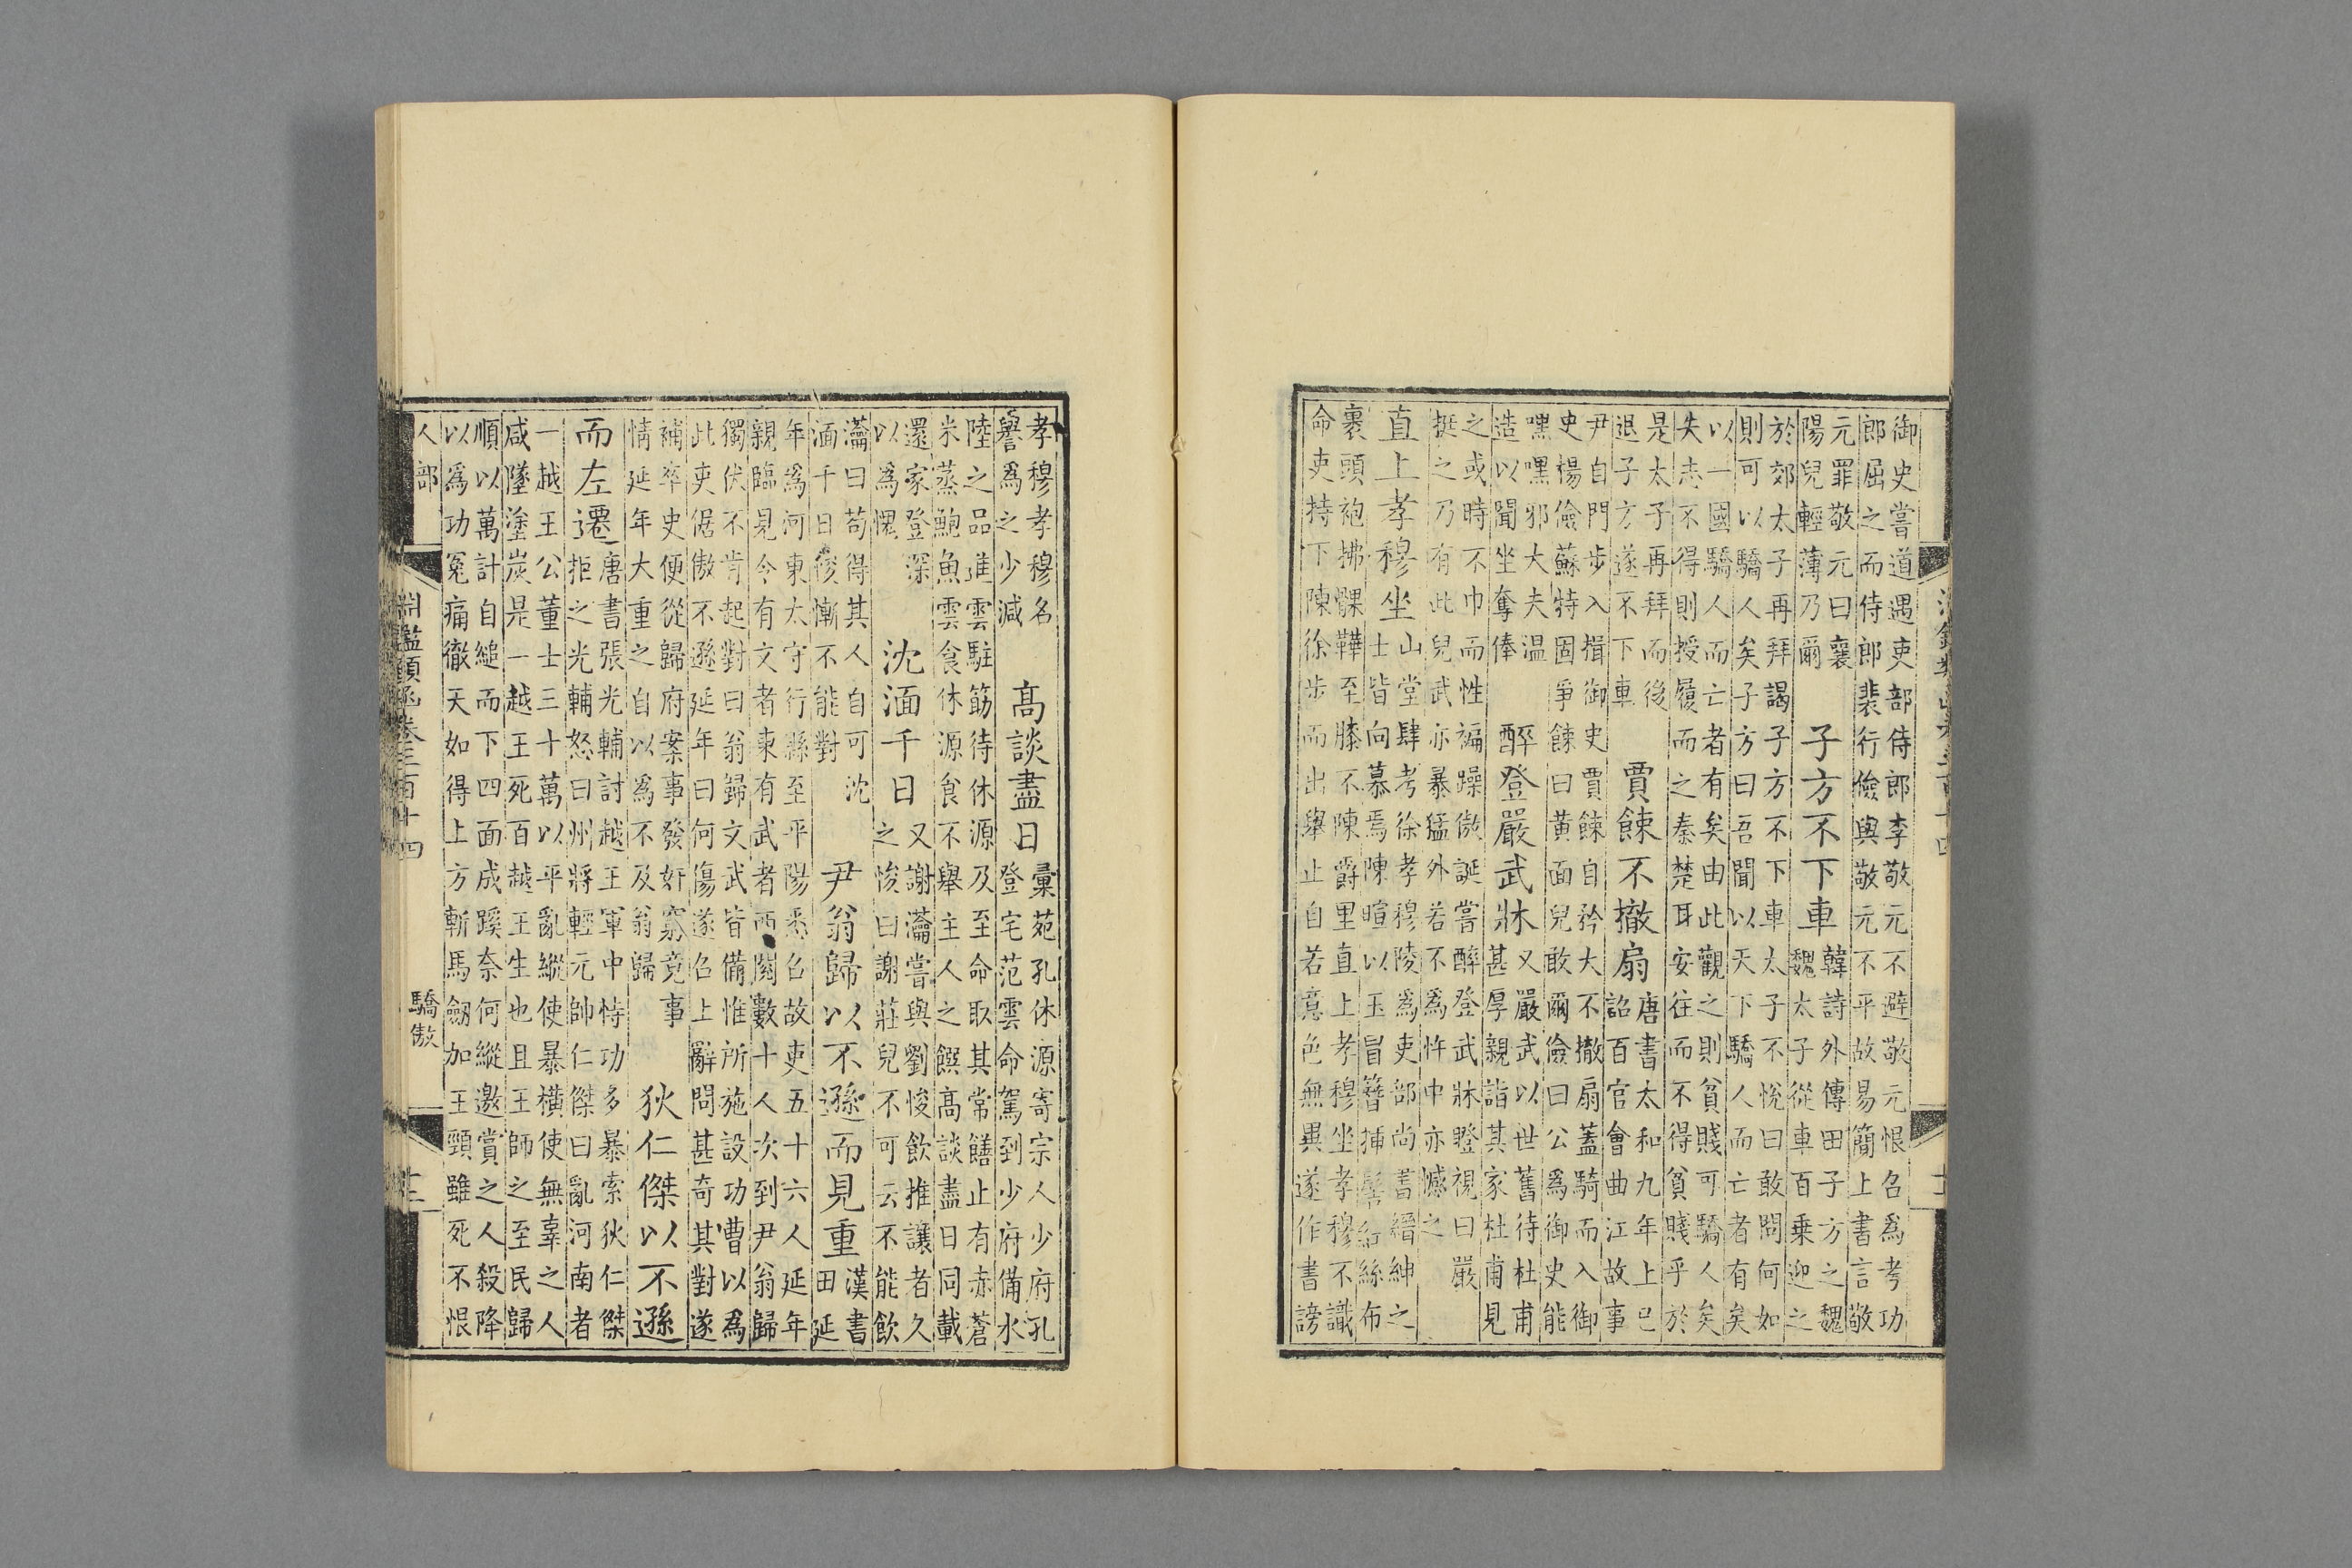 御史嘗道遇吏部侍郎李敬元不避敬元恨召為考功
郎屈之而侍郎裴行儉與敬元不平故易簡上書言敬
元罪敬元曰襄
陽兒輕薄乃爾
子方不下車
韓詩外傳田子方之魏
魏太子從車百乗迎之
於郊太子再拜謁子方不下車太子不悅曰敢問何如
則可以驕人矣子方曰吾聞以天下驕人而亡者有矣
以一國驕人而亡者有矣由此觀之則貧賤可驕人矣
失志不得則授履而之秦楚耳安往而不得貧賤乎於
是太子再拜而後
退子方遂不下車
賈餗不撤扇
唐書太和九年上巳
詔百官會曲江故事
尹自門步入揖御史賈餗自矜大不撤扇蓋騎而入御
史楊儉蘇特固爭餗曰黃面兒敢爾儉曰公為御史能
嘿嘿邪大夫温
造以聞坐奪俸
醉登嚴武牀
又嚴武以世舊待杜甫
甚厚親詣其家杜甫見
之或時不巾而性褊躁傲誕嘗醉登武牀瞪視曰嚴
挺之乃有此兒武亦暴猛外若不為忤中亦憾之
直上孝穆坐
山堂肆考徐孝穆陵為吏部尚書縉紳之
士皆向慕焉陳暄以玉冒簪插髻紅絲布
裹頭袍拂髁鞾至膝不陳爵里直上孝穆坐孝穆不識
命吏持下陳徐步而出舉止自若意色無異遂作書謗
孝穆孝穆名
譽為之少減
高談盡日
彙苑孔休源寄宗人少府孔
登宅范雲命駕到少府備水
陸之品進雲駐筯待休源乃至命取其常饍止有赤蒼
米蒸鮑魚雲食休源食不舉主人之饌高談盡日同載
還家登深
以為愧
沈湎千日
又謝瀹嘗與劉悛飲推讓者久
之悛曰謝莊兒不可云不能飲
瀹曰苟得其人自可沈
湎千日悛慚不能對
尹翁歸以不遜而見重
漢書
田延
年為河東太守行縣至平陽悉召故吏五十六人延年
親臨見令有文者東有武者西閱數十人次到尹翁歸
獨伏不肯起對曰翁歸文武皆備惟所施設功曹以為
此吏倨傲不遜延年曰何傷遂召上辭問甚奇其對遂
補卒史便從歸府案事發奸窮竟事
情延年大重之自以為不及翁歸
狄仁傑以不遜
而左遷
唐書張光輔討越王軍中恃功多暴索狄仁傑
拒之光輔怒曰州將輕元帥仁傑曰亂河南者
一越王公董士三十萬以平亂縱使暴橫使無辜之人
咸墜塗炭是一越王死百越王生也且王師之至民歸
順以萬計自縋而下四面成蹊奈何縱邀賞之人殺降
以為功冤痛徹天如得上方斬馬劒加王頸雖死不恨
人部
淵鑑類函卷三百十四
驕傲
十二